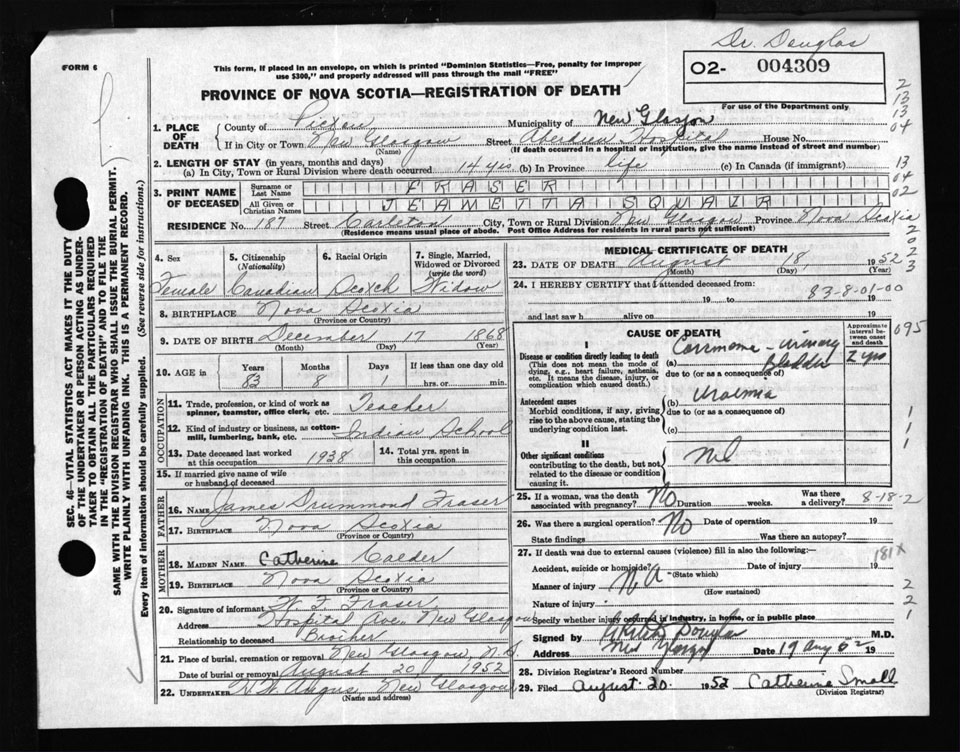 Dr. Douglas
FORM 6
This form, if placed in an envelope, on which is printed "Dominion Statistics—Free, penalty for improper
use $300," and properly addressed will pass through the mail "FREE"
O2- 004309
For use of the Department only
PROVINCE OF NOVA SCOTIA—REGISTRATION OF DEATH
SEC. 46—VITAL STATISTICS ACT MAKES IT THE DUTY
OF THE UNDERTAKER OR PERSON ACTING AS UNDER-
TAKER TO OBTAIN ALL THE PARTICULARS REQUIRED
IN THE "REGISTRATION OF DEATH" AND TO FILE THE
SAME WITH THE DIVISION REGISTRAR WHO SHALL ISSUE THE BURIAL PERMIT.
WRITE PLAINLY WITH UNFADING INK. THIS IS A PERMANENT RECORD.
Every item of information should be carefully supplied. (See reverse side for instructions.)
1. PLACE OF DEATH
County of Pictou Municipality of New Glasgow
If in City or Town New Glasgow Street Aberdeen Hospital House No.
(Name) (If death occurred in a hospital or institution, give the name instead of street and number)
2. LENGTH OF STAY (in years, months and days)
(a) In City, Town or Rural Division where death occurred 14 yrs (b) In Province life (c) In Canada (if immigrant)
3. PRINT NAME OF DECEASED
Surname or Last Name FRASER
All Given or Christian Names JEAMETTA SQUAIR
RESIDENCE No. 187 Street Carleton City, Town or Rural Division New Glasgow Province Nova Scotia
(Residence means usual place of abode. Post Office Address for residents in rural parts not sufficient)
4. Sex 5. Citizenship (Nationality) 6. Racial Origin 7. Single, Married, Widowed or Divorced (write the word)
Female Canadian Scotch Widow
8. BIRTHPLACE Nova Scotia
(Province or Country)
9. DATE OF BIRTH December 17 1868
(Month) (Day) (Year)
10. AGE in Years Months Days If less than one day old
83 8 1 hrs. or min.
OCCUPATION
11. Trade, profession, or kind of work as
spinner, teamster, office clerk, etc. Teacher
12. Kind of industry or business, as cotton-
mill, lumbering, bank, etc. Indian School
13. Date deceased last worked
at this occupation 1938
14. Total yrs. spent in
this occupation
15. If married give name of wife
or husband of deceased
FATHER
16. NAME James Drummond Fraser
17. BIRTHPLACE Nova Scotia
(Province or Country)
MOTHER
18. MAIDEN NAME Catherine Calder
19. BIRTHPLACE Nova Scotia
(Province or Country)
20. Signature of informant W. F. Fraser
Address Hospital Ave. New Glasgow
Relationship to deceased Brother
21. Place of burial, cremation or removal New Glasgow, N.S.
Date of burial or removal August 20 1952
22. UNDERTAKER H. W. Angus, New Glasgow
(Name and address)
MEDICAL CERTIFICATE OF DEATH
23. DATE OF DEATH August 18, 1952
(Month) (Day) (Year)
24. I HEREBY CERTIFY that I attended deceased from:
19 to 19
83-8-01-00
and last saw h alive on 19
CAUSE OF DEATH
Approximate interval between onset and death
I
Disease or condition directly leading to death
(This does not mean the mode of
dying, e.g., heart failure, asthenia,
etc. It means the disease, injury, or
complication which caused death.)
(a) Carcinoma - urinary bladder 2 yrs
due to (or as a consequence of)
Antecedent causes
Morbid conditions, if any, giving
rise to the above cause, stating the
underlying condition last.
(b) Uraemia
due to (or as a consequence of)
(c)
II
Other significant conditions
contributing to the death, but not
related to the disease or condition
causing it.
Nil
25. If a woman, was the death
associated with pregnancy? No Duration weeks. Was there a delivery?
8-18-2
26. Was there a surgical operation? No Date of operation 19
State findings Was there an autopsy?
27. If death was due to external causes (violence) fill in also the following:—
Accident, suicide or homicide? Date of injury 19
(State which)
NA
181X
Manner of injury
(How sustained)
Nature of injury
Specify whether injury occurred in industry, in home, or in public place
Signed by Douglas M.D.
Address New Glasgow Date 19 Aug 52 19
28. Division Registrar's Record Number
29. Filed August 20 1952 Catherine Small
(Division Registrar)
2
13
13
04
13
04
02
2
0
2
2
3
095
1
1
1
2
2
1